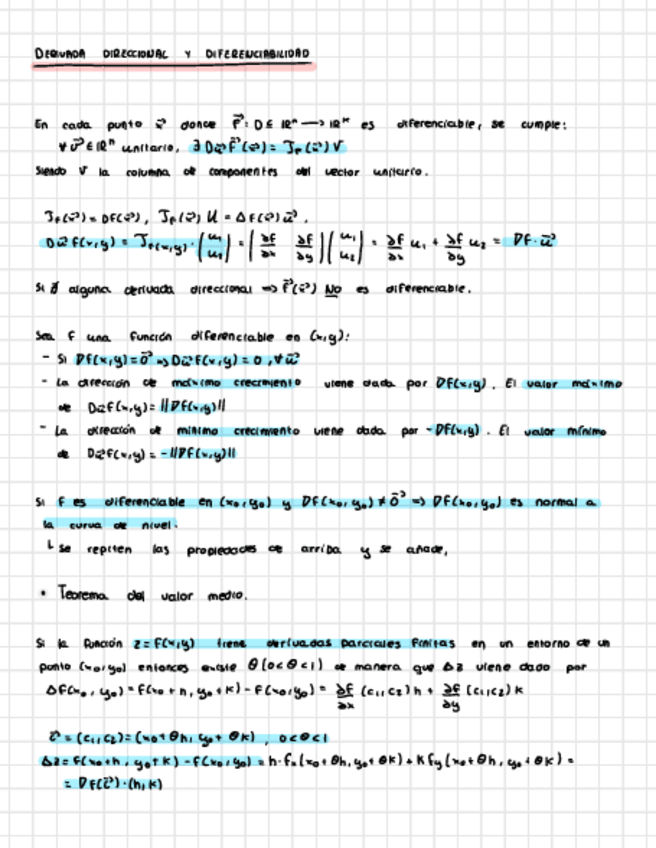 DERIVADA DIRECCIONAL Y DIFERENCIABILIDAD
En cada punto c⃗ donde F⃗: D ⊆ ℝⁿ → ℝᵏ es diferenciable, se cumple:
∀ v⃗ ∈ ℝⁿ unitario, ∃ Dv⃗ F⃗(c⃗) = J_F(c⃗) V
Siendo V la columna de componentes del vector unitario.
J_F(c⃗) = DF(c⃗), J_F(c⃗) U = ΔF(c⃗) u⃗.
Du⃗ f(x,y) = J_F(x,y) · (u₁ u₂) = (∂f/∂x ∂f/∂y)(u₁ u₂) = ∂f/∂x u₁ + ∂f/∂y u₂ = ∇F · u⃗
Si ∄ alguna derivada direccional => F⃗(c⃗) NO es diferenciable.
Sea F una función diferenciable en (x,y):
- Si ∇f(x,y) = 0⃗ => Du⃗ F(x,y) = 0, ∀ u⃗
- La dirección de máximo crecimiento viene dada por ∇f(x,y). El valor máximo
de Du⃗ f(x,y) = ||∇f(x,y)||
- La dirección de mínimo crecimiento viene dada por -∇f(x,y). El valor mínimo
de Du⃗ f(x,y) = -||∇f(x,y)||
Si F es diferenciable en (x₀,y₀) y ∇F(x₀,y₀) ≠ 0⃗ => ∇F(x₀,y₀) es normal a
la curva de nivel.
└ se repiten las propiedades de arriba y se añade,
• Teorema del valor medio.
Si la función z = F(x,y) tiene derivadas parciales finitas en un entorno de un
punto (x₀,y₀) entonces existe θ (0<θ<1) de manera que Δz viene dado por
ΔF(x₀, y₀) = F(x₀+h, y₀+k) - F(x₀,y₀) = ∂f/∂x (c₁,c₂) h + ∂f/∂y (c₁,c₂) k
c⃗ = (c₁,c₂) = (x₀+θh, y₀+θk), 0<θ<1
Δz = F(x₀+h, y₀+k) - F(x₀,y₀) = h·fₓ(x₀+θh, y₀+θk) + k f_y(x₀+θh, y₀+θk) =
= ∇F(c⃗)·(h,k)